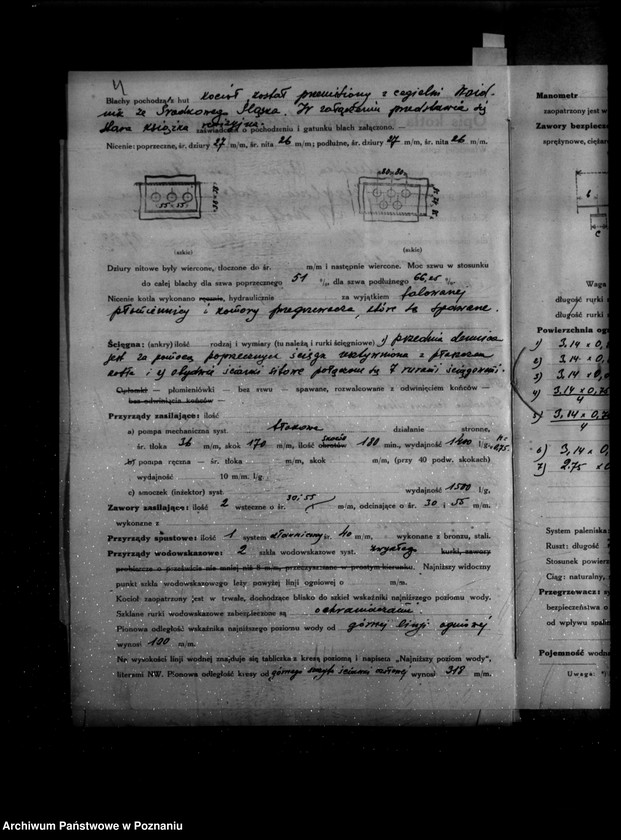 4
Blachy pochodzą z hut kocioł został przeniesiony z cegielni
nik ze Środkowego Śląska. W załączeniu przedstawia się
stara książka zaświadczenie o pochodzeniu i gatunku blach załączono. —
Nicenie: poprzeczne, śr. dziury 27 m/m, śr. nita 26 m/m; podłużne, śr. dziury 27 m/m, śr. nita 26 m/m.
55 × 55
30 - 80
(szkic) (szkic)
Dziury nitowe były wiercone, tłoczone do śr. m/m i następnie wiercone. Moc szwu w stosunku
do całej blachy dla szwa poprzecznego 51 %, dla szwa podłużnego 66,25 %.
Nicenie kotła wykonano ręcznie, hydraulicznie za wyjątkiem falowanej
płomienicy i komory przegrzewacza, które są spawane.
Ścięgna: (ankry) ilość rodzaj i wymiary (tu należą i rurki ścięgniowe) 1) przednia dennica
jest za pomocą poprzecznego ścięga usztywniona z płaszczem
kotła i 2) obydwie ścianki sitowe połączone są 7 rurami ściągowemi.
— płomieniówki — bez szwu — spawane, rozwalcowane z odwinięciem końców —
bez odwinięcia końców —
Przyrządy zasilające: ilość
a) pompa mechaniczna syst. tłokowa działanie stronne,
śr. tłoka 36 m/m, skok 170 m/m, ilość obrotów skoków 180 min., wydajność 1400 l/g,
b) pompa ręczna — śr. tłoka m/m, skok m/m, (przy 40 podw. skokach)
wydajność 10 m/m. l/g.
c) smoczek (inżektor) syst. wydajność 1500 l/g,
Zawory zasilające: ilość 2 wsteczne o śr. 30 i 55 m/m, odcinające o śr. 30 i 55 m/m.
wykonane z
Przyrządy spustowe: ilość 1 system dławnicowy śr. 40 m/m, wykonane z bronzu, stali.
Przyrządy wodowskazowe: 2 szkła wodowskazowe syst. zwykłego kurki, zawory
probiercze o prześwicie nie mniej niż 8 m/m, przeczyszczane w prostym kierunku. Najniższy widoczny
punkt szkła wodowskazowego leży powyżej linji ogniowej o m/m.
Kocioł zaopatrzony jest w trwałe, dochodzące blisko do szkieł wskaźniki najniższego poziomu wody.
Szklane rurki wodowskazowe zabezpieczone są ochraniaczami
Pionowa odległość wskaźnika najniższego poziomu wody od górnej linji ogniowej
wynosi 100 m/m.
Na wysokości linji wodnej znajduje się tabliczka z kresą poziomą i napisem „Najniższy poziom wody",
literami NW. Pionowa odległość kresy od górnego szczytu ścianki czołowej wynosi 318 m/m.
Manometr
zaopatrzony jest w
Zawory bezpiecze
sprężynowe, cięża
b
c
Waga
długość rurki
długość rurki
Powierzchnia og
1) 3,14 × 0,
2) 3,14 × 0,
3) 3,14 × 0,
4) 3,14 × 0,
4
5) 3,14 × 0,
4
6) 3,14 × 0,
7) 2.75 × 0
System paleniska:
Ruszt: długość
Stosunek powierz
Ciąg: naturalny,
Przegrzewacz: s
bezpieczeństwa o
od wpływu spalin
Pojemność wodn
Uwaga:
Archiwum Państwowe w Poznaniu